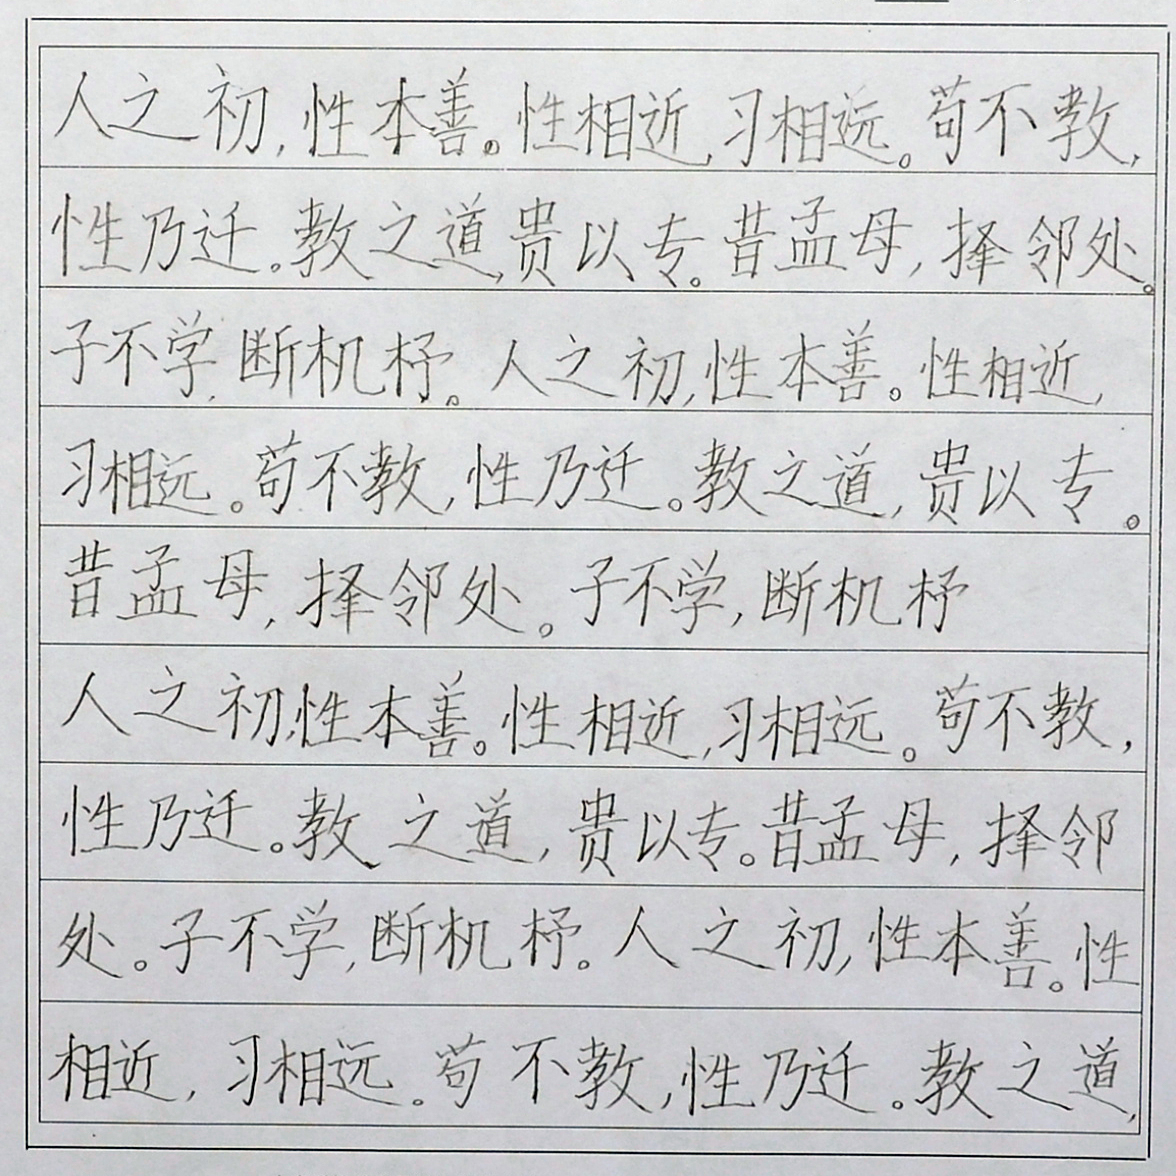 人之初,性本善。性相近,习相远。苟不教,
性乃迁。教之道,贵以专。昔孟母,择邻处。
子不学,断机杼。人之初,性本善。性相近,
习相远。苟不教,性乃迁。教之道,贵以专。
昔孟母,择邻处。子不学,断机杼
人之初,性本善。性相近,习相远。苟不教,
性乃迁。教之道,贵以专。昔孟母,择邻
处。子不学,断机杼。人之初,性本善。性
相近,习相远。苟不教,性乃迁。教之道,